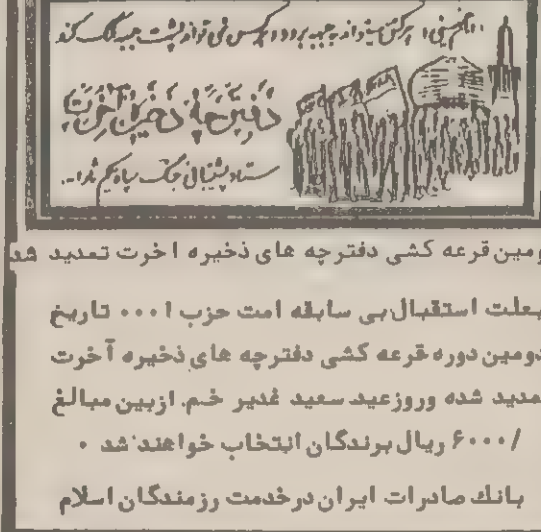 امام خمینی: هر کس میتواند به جبهه برود و هر کس نمی تواند پشت جبهه کمک کند
دفترچهٔ ذخیرهٔ آخرت
ستاد پشتیبانی جنگ سپاه
ومین قرعه کشی دفترچه های ذخیره اخرت تمدید شد
بعلت استقبال بی سابقه امت حزب ا ... تاریخ
دومین دوره قرعه کشی دفترچه های ذخیره آخرت
تمدید شده وروز عید سعید غدیر خم. ازبین مبالغ
/۶۰۰۰ ریال برندگان انتخاب خواهند شد .
بانك صادرات ایران درخدمت رزمندگان اسلام